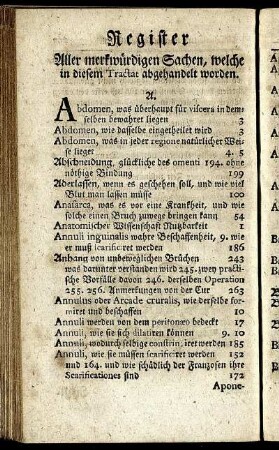 Register
Aller merkwürdigen Sachen, welche
in diesem Tractat abgehandelt worden.
A.
Abdomen, was überhaupt für viscera in dem-
selben bewahret liegen 3
Abdomen, wie dasselbe eingetheilet wird 3
Abdomen, was in jeder regione natürlicher Wei-
se lieget 4. 5
Abschneidung, glückliche des omenti 194. ohne
nöthige Bindung 199
Aderlassen, wenn es geschehen soll, und wie viel
Blut man lassen müsse 100
Anasarca, was es vor eine Kranckheit, und wie
solche einen Bruch zuwege bringen kann 54
Anatomischer Wissenschaft Nutzbarkeit 1
Annuli inguinalis wahre Beschaffenheit, 9. wie
er muß scarificiret werden 186
Anhang von unbeweglichen Brüchen 243
was darunter verstanden wird 245. zwey practi-
sche Vorfälle davon 246. derselben Operation
255. 256. Anmerkungen von der Cur 263
Annulus oder Arcade cruralis, wie derselbe for-
miret und beschaffen 10
Annuli werden von dem peritonæo bedeckt 17
Annuli, wie sie sich dilatiren können 9. 10
Annuli, wodurch selbige constringiret werden 185
Annuli, wie sie müssen scarificiret werden 152
und 164. und wie schädlich der Franzosen ihre
Scarificationes sind 172
Apone-